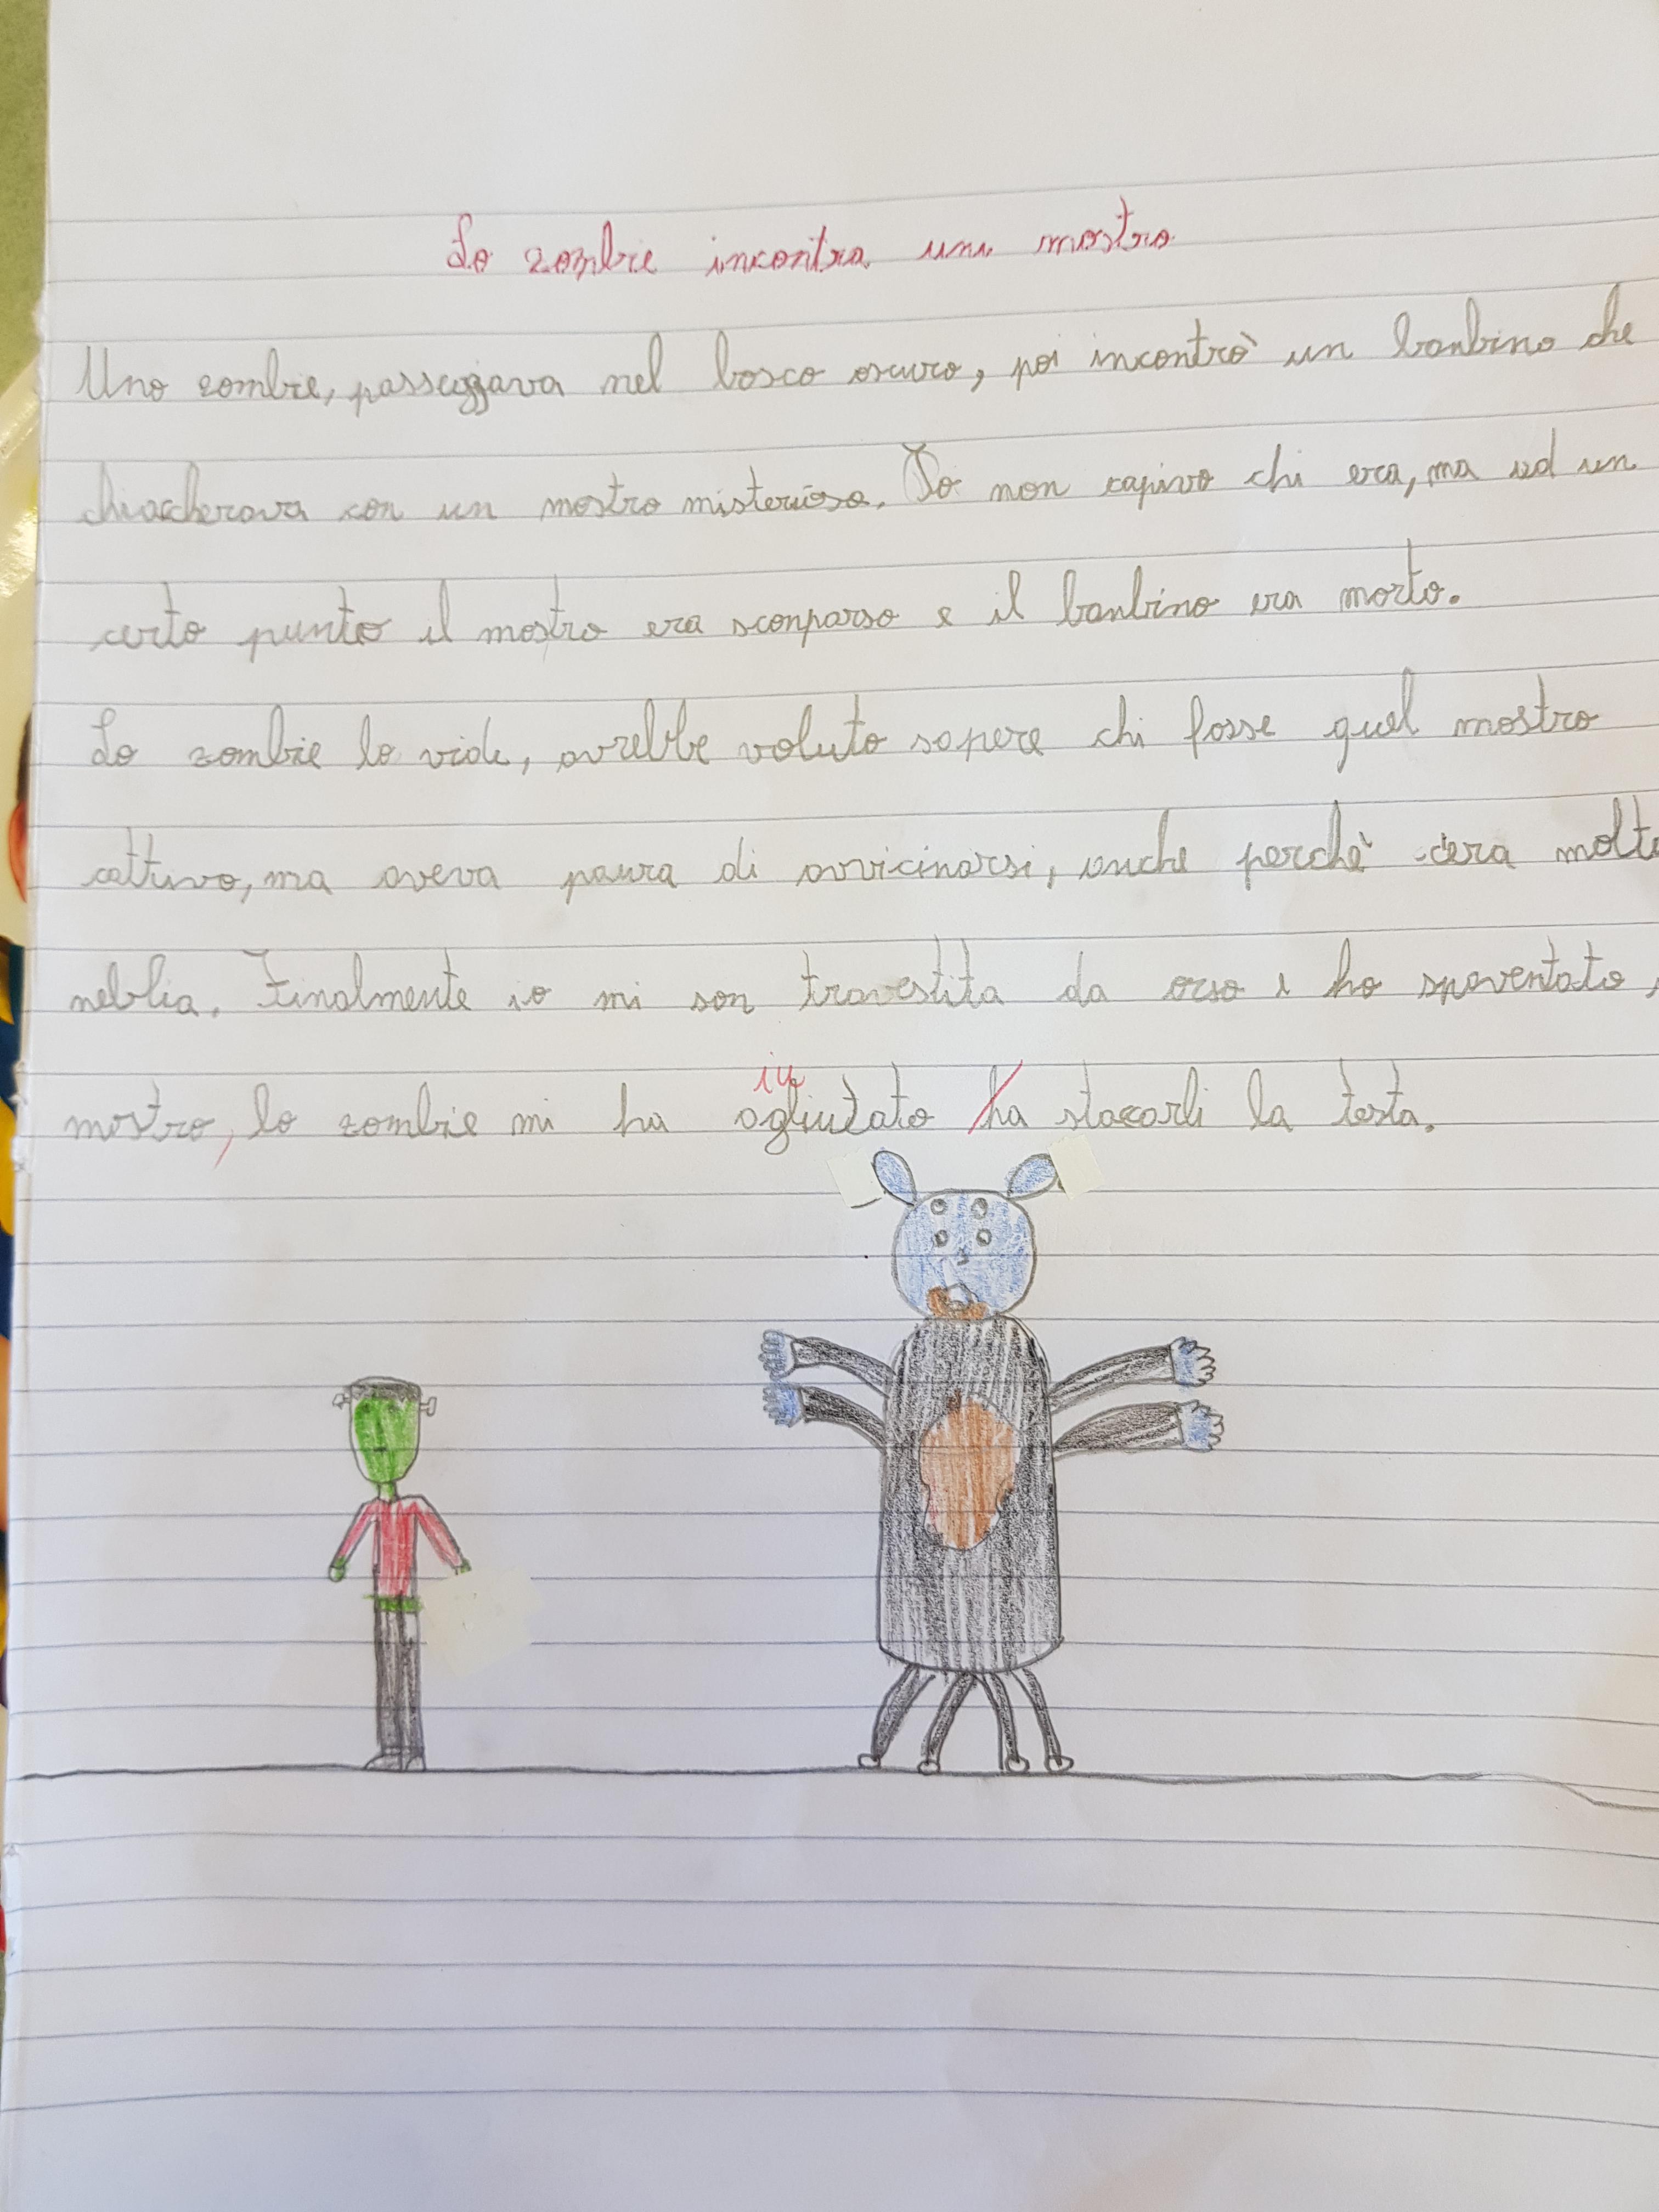 Lo zombie incontra un mostro
Uno zombie, passeggava nel bosco oscuro, poi incontrò un banbino che
chiaccherava con un mostro misterioso. Io non capivo chi era, ma ad un
certo punto il mostro era sconparso e il banbino era morto.
Lo zombie lo vide, avrebbe voluto sapere chi fosse quel mostro
cattivo, ma aveva paura di avvicinarsi, anche perchè c'era molta
nebbia. Finalmente io mi son travestita da orso e ho spaventato
iu
mostro, lo zombie mi ha agliutato ha stacarli la testa.